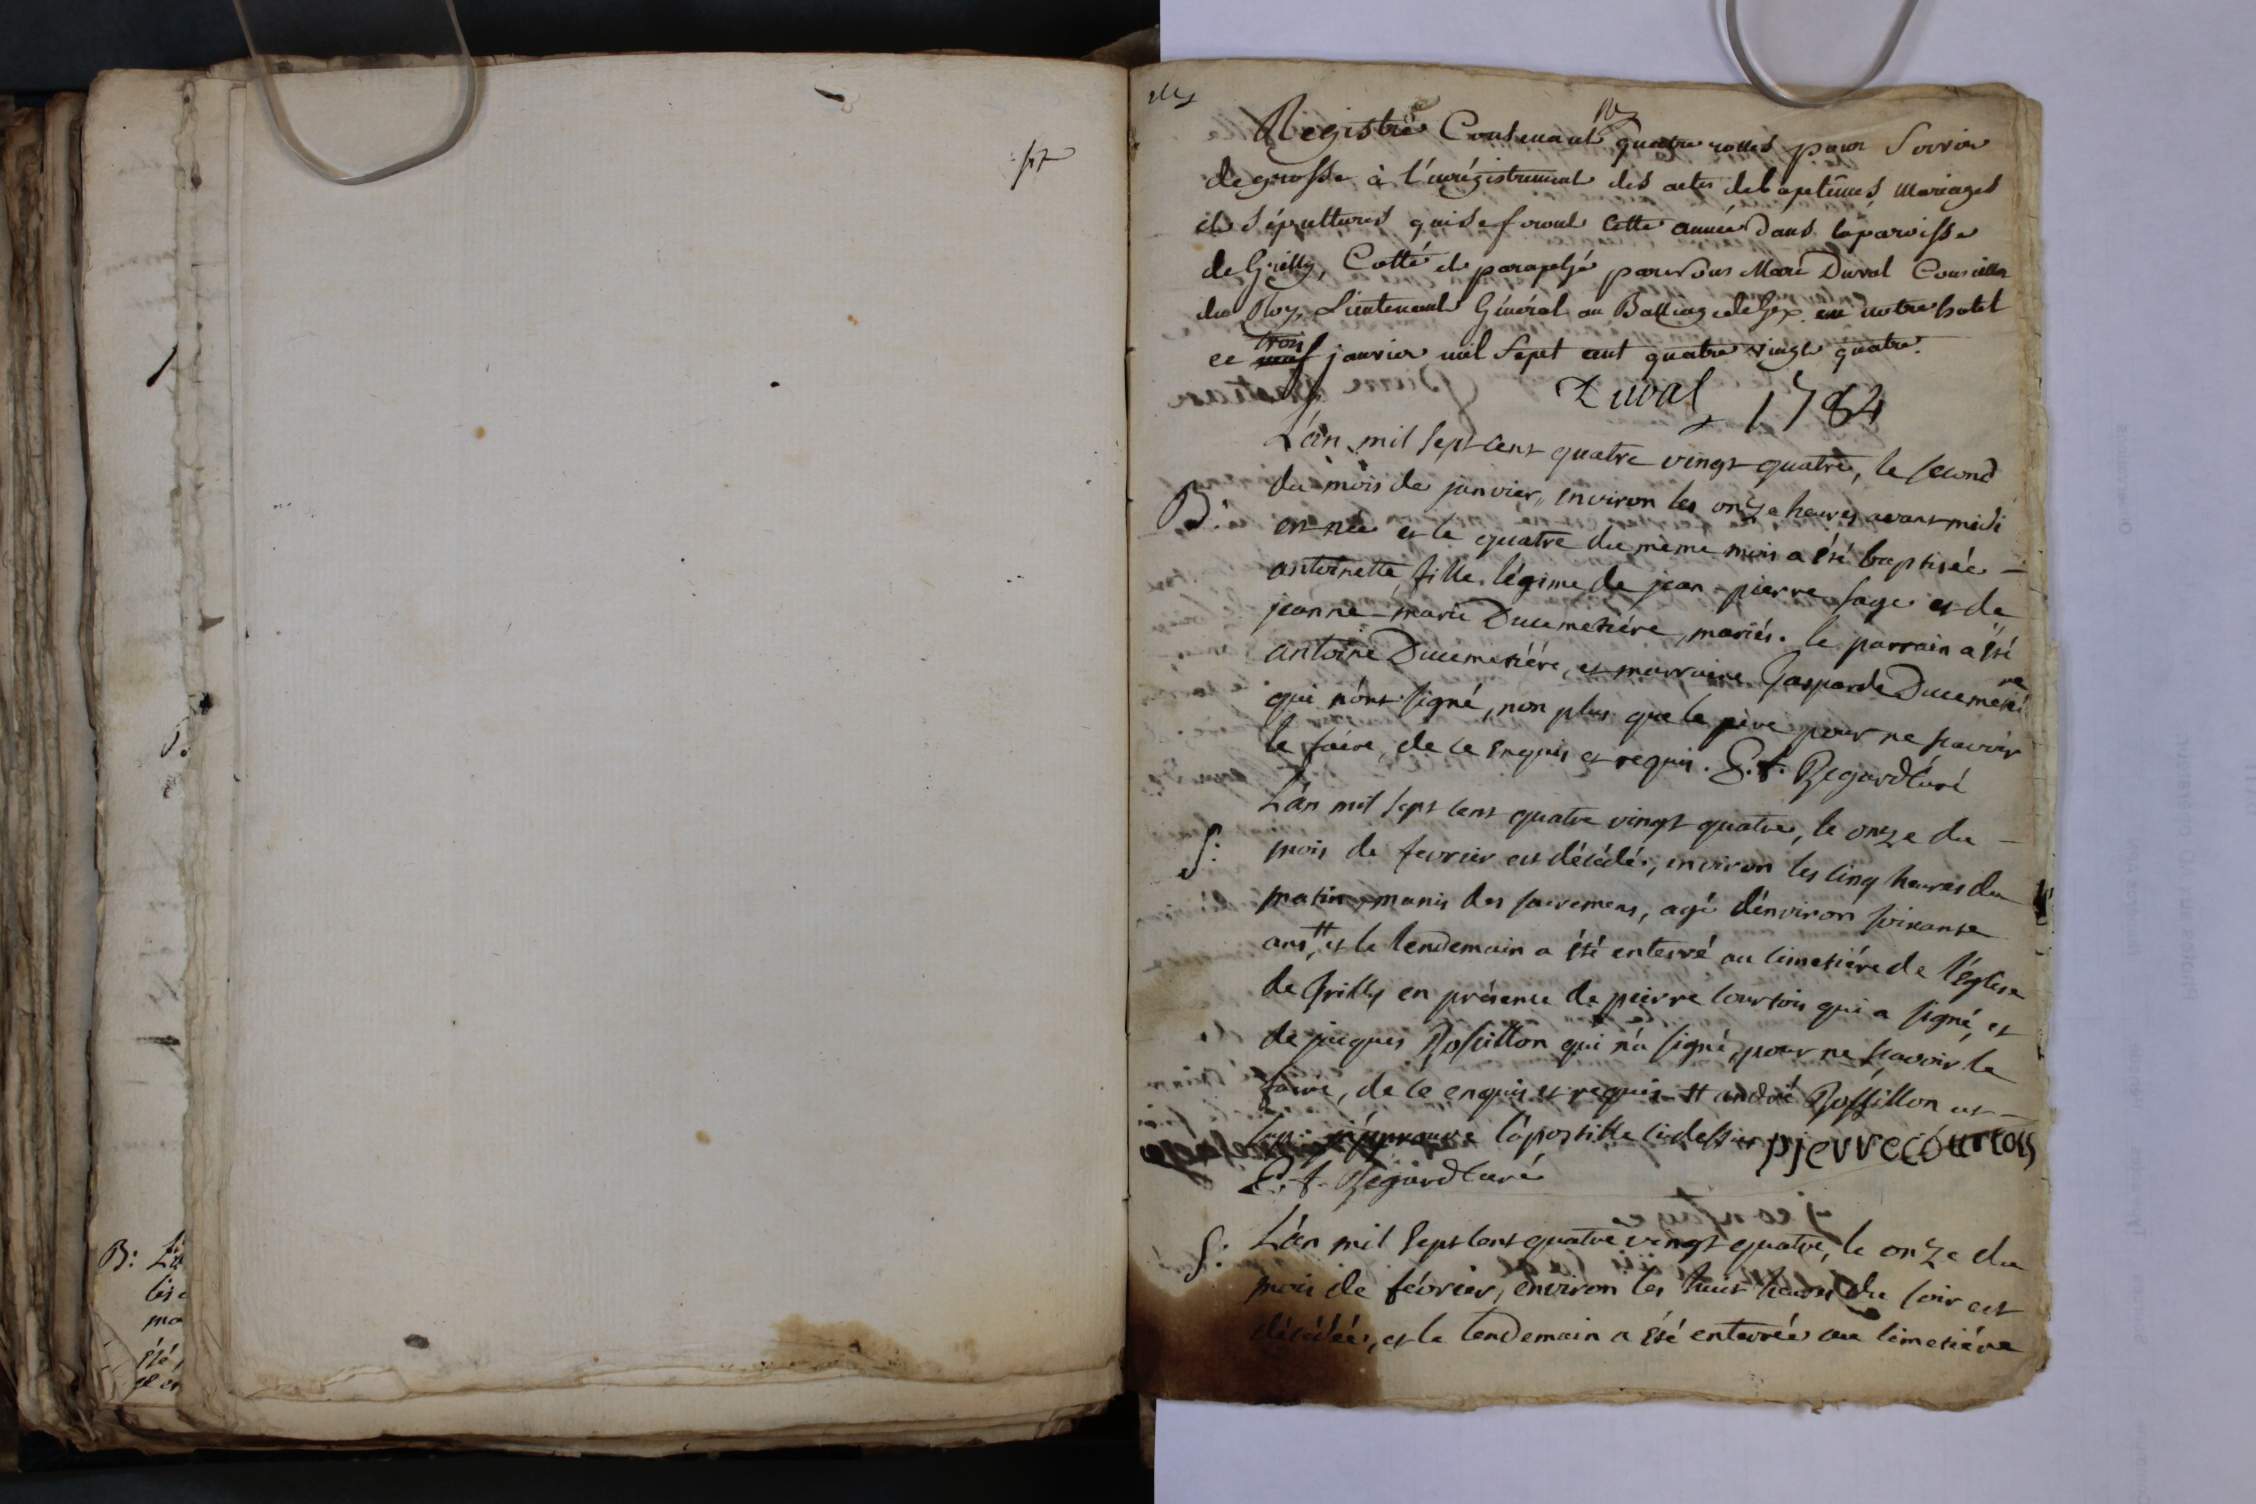 Registre Contenant quatre rolles pour Servir
de grosse à l'enrégistrement des actes de bapetêmes, mariages
et Sépultures qui se feront cette année dans la paroisse
de Grilly, Cotté et paraphé par Nous Marc Duval Conseiller
du Roy, Lieutenant Général au Balliage de Gex en notre hotel
ce trois janvier mil Sept cent quatre vingt quatre.
Duval 1784
L'an mil sept cent quatre vingt quatre, le second
du mois de janvier, environ les onze heures avant midi
B: est née et le quatre du même mois a été baptisée –
antoinette fille légime de jean-pierre sage et de
jeanne-marie Ducimetiére, mariés. le parrain a été
antoine Ducimetiére, et marraine Gasparde Ducimetiére
qui n'ont signé, non plus que le père pour ne scavoir
le faire, de ce enquis et requis. C. f. Regard Curé
L'an mil sept cent quatre vingt quatre, le onze du –
S: mois de fevrier est décédé, environ les cinq heures du
matin, munis des sacremens, agé d'environ soixante
ans, # et le lendemain a été enterré au cimetiére de l'église
de Grilly en présence de pierre courtois qui a signé, et
de jacques Rossillon qui n'a signé, pour ne scavoir le
faire, de ce enquis et requis # andré Rossillon
j'approuve l'apostille ci dessus pierre courtois
C. f. Regard Curé
S: L'an mil sept cent quatre vingt quatre, le onze du
mois de février, environ les huit heures du soir est
décédée, et le lendemain a été enterrée au cimetiére
B: